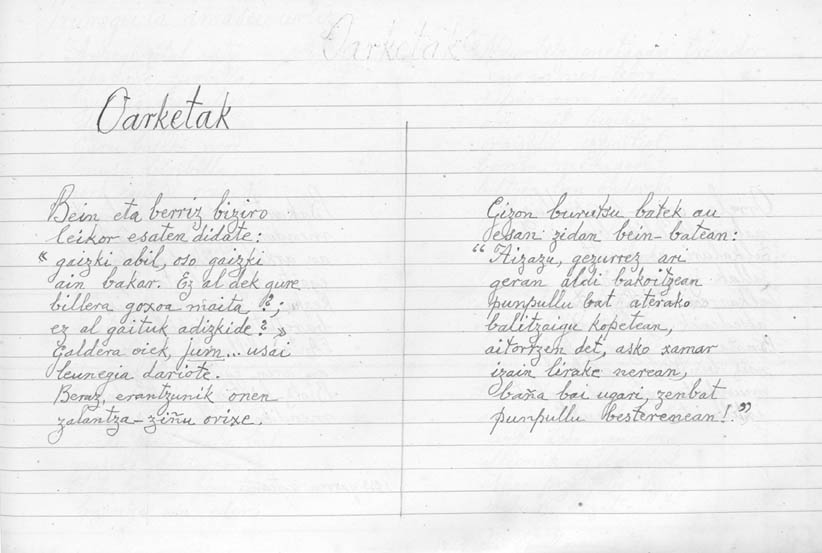 Oarketak
Bein eta berriz biziro
leikor esaten didate:
« gaizki abil, oso gaizki
ain bakar. Ez al dek gure
billera goxoa maita ?;
ez al gaituk adizkide? »
Galdera oiek, jum... usai
leunegia dariote.
Beraz, erantzunik onen
zalantza-ziñu orixe.
Gizon burutsu batek au
esan zidan bein-batean:
“Aizazu, gezurrez ari
geran aldi bakoitzean
punpullu bat aterako
balitzaigu kopetean,
aitortzen det, asko xamar
izain lirake nerean,
baña bai ugari, zenbat
punpullu besterenean!.”